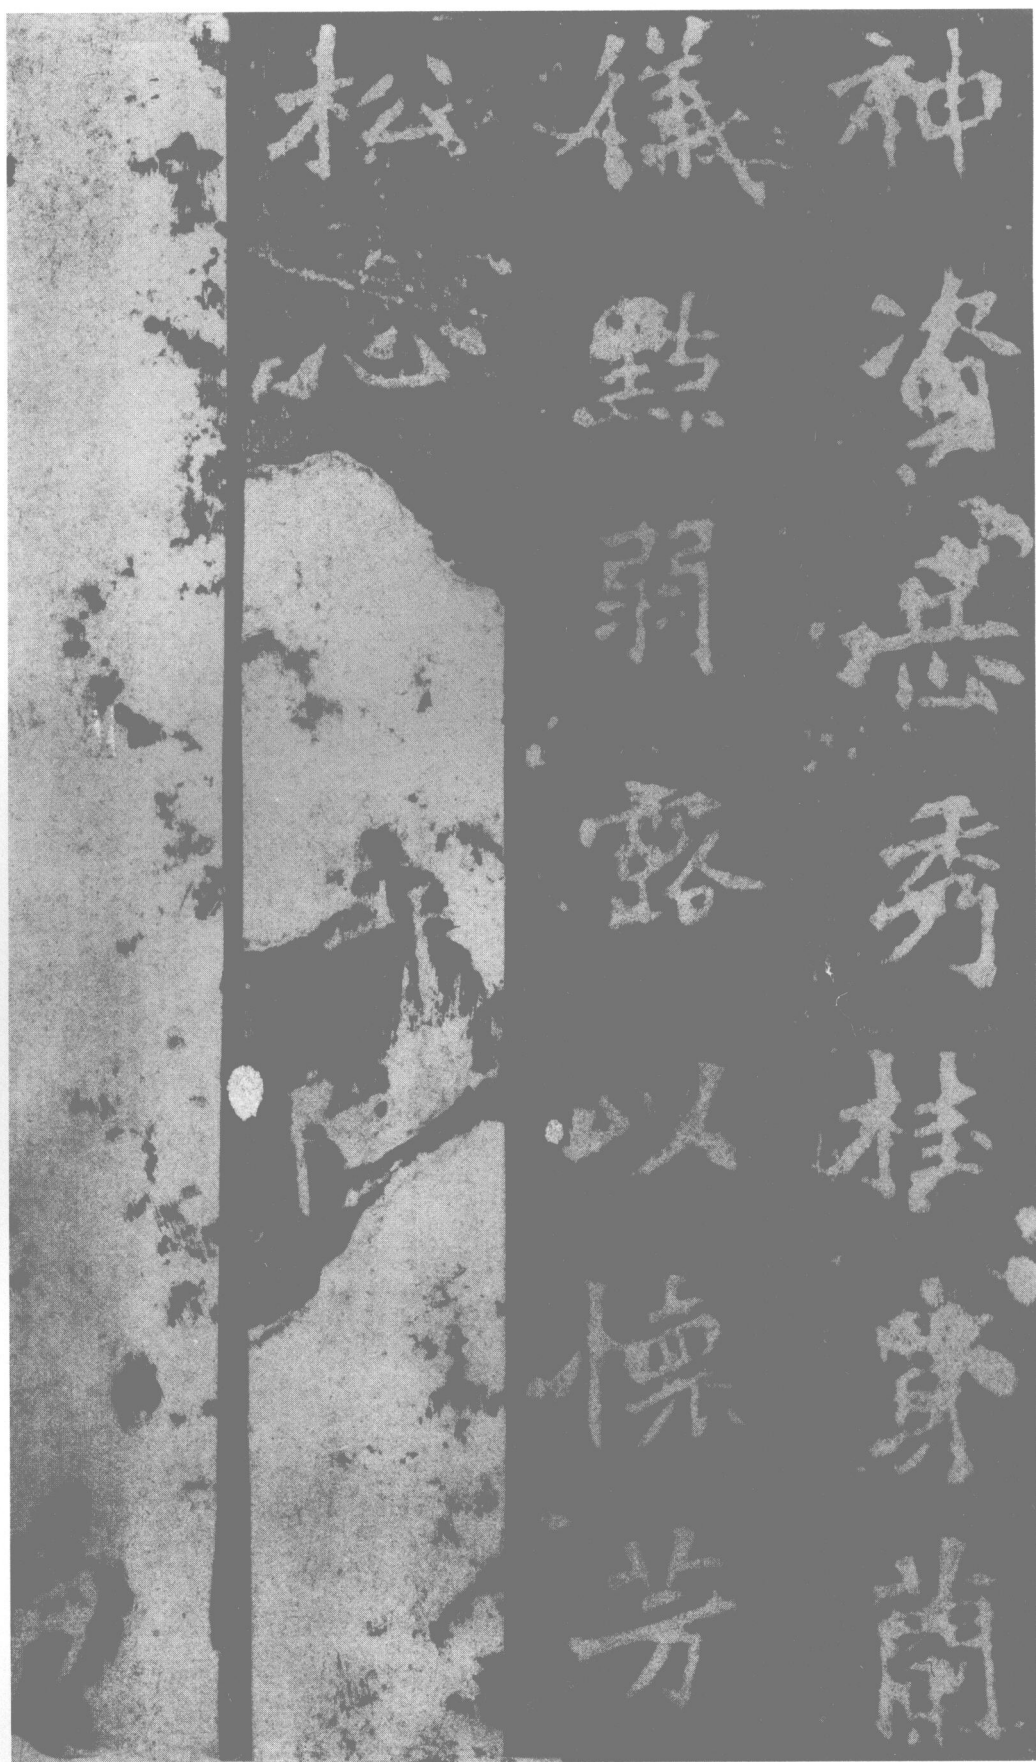 神資岳秀桂蘭
儀點弱露以懷芳
松